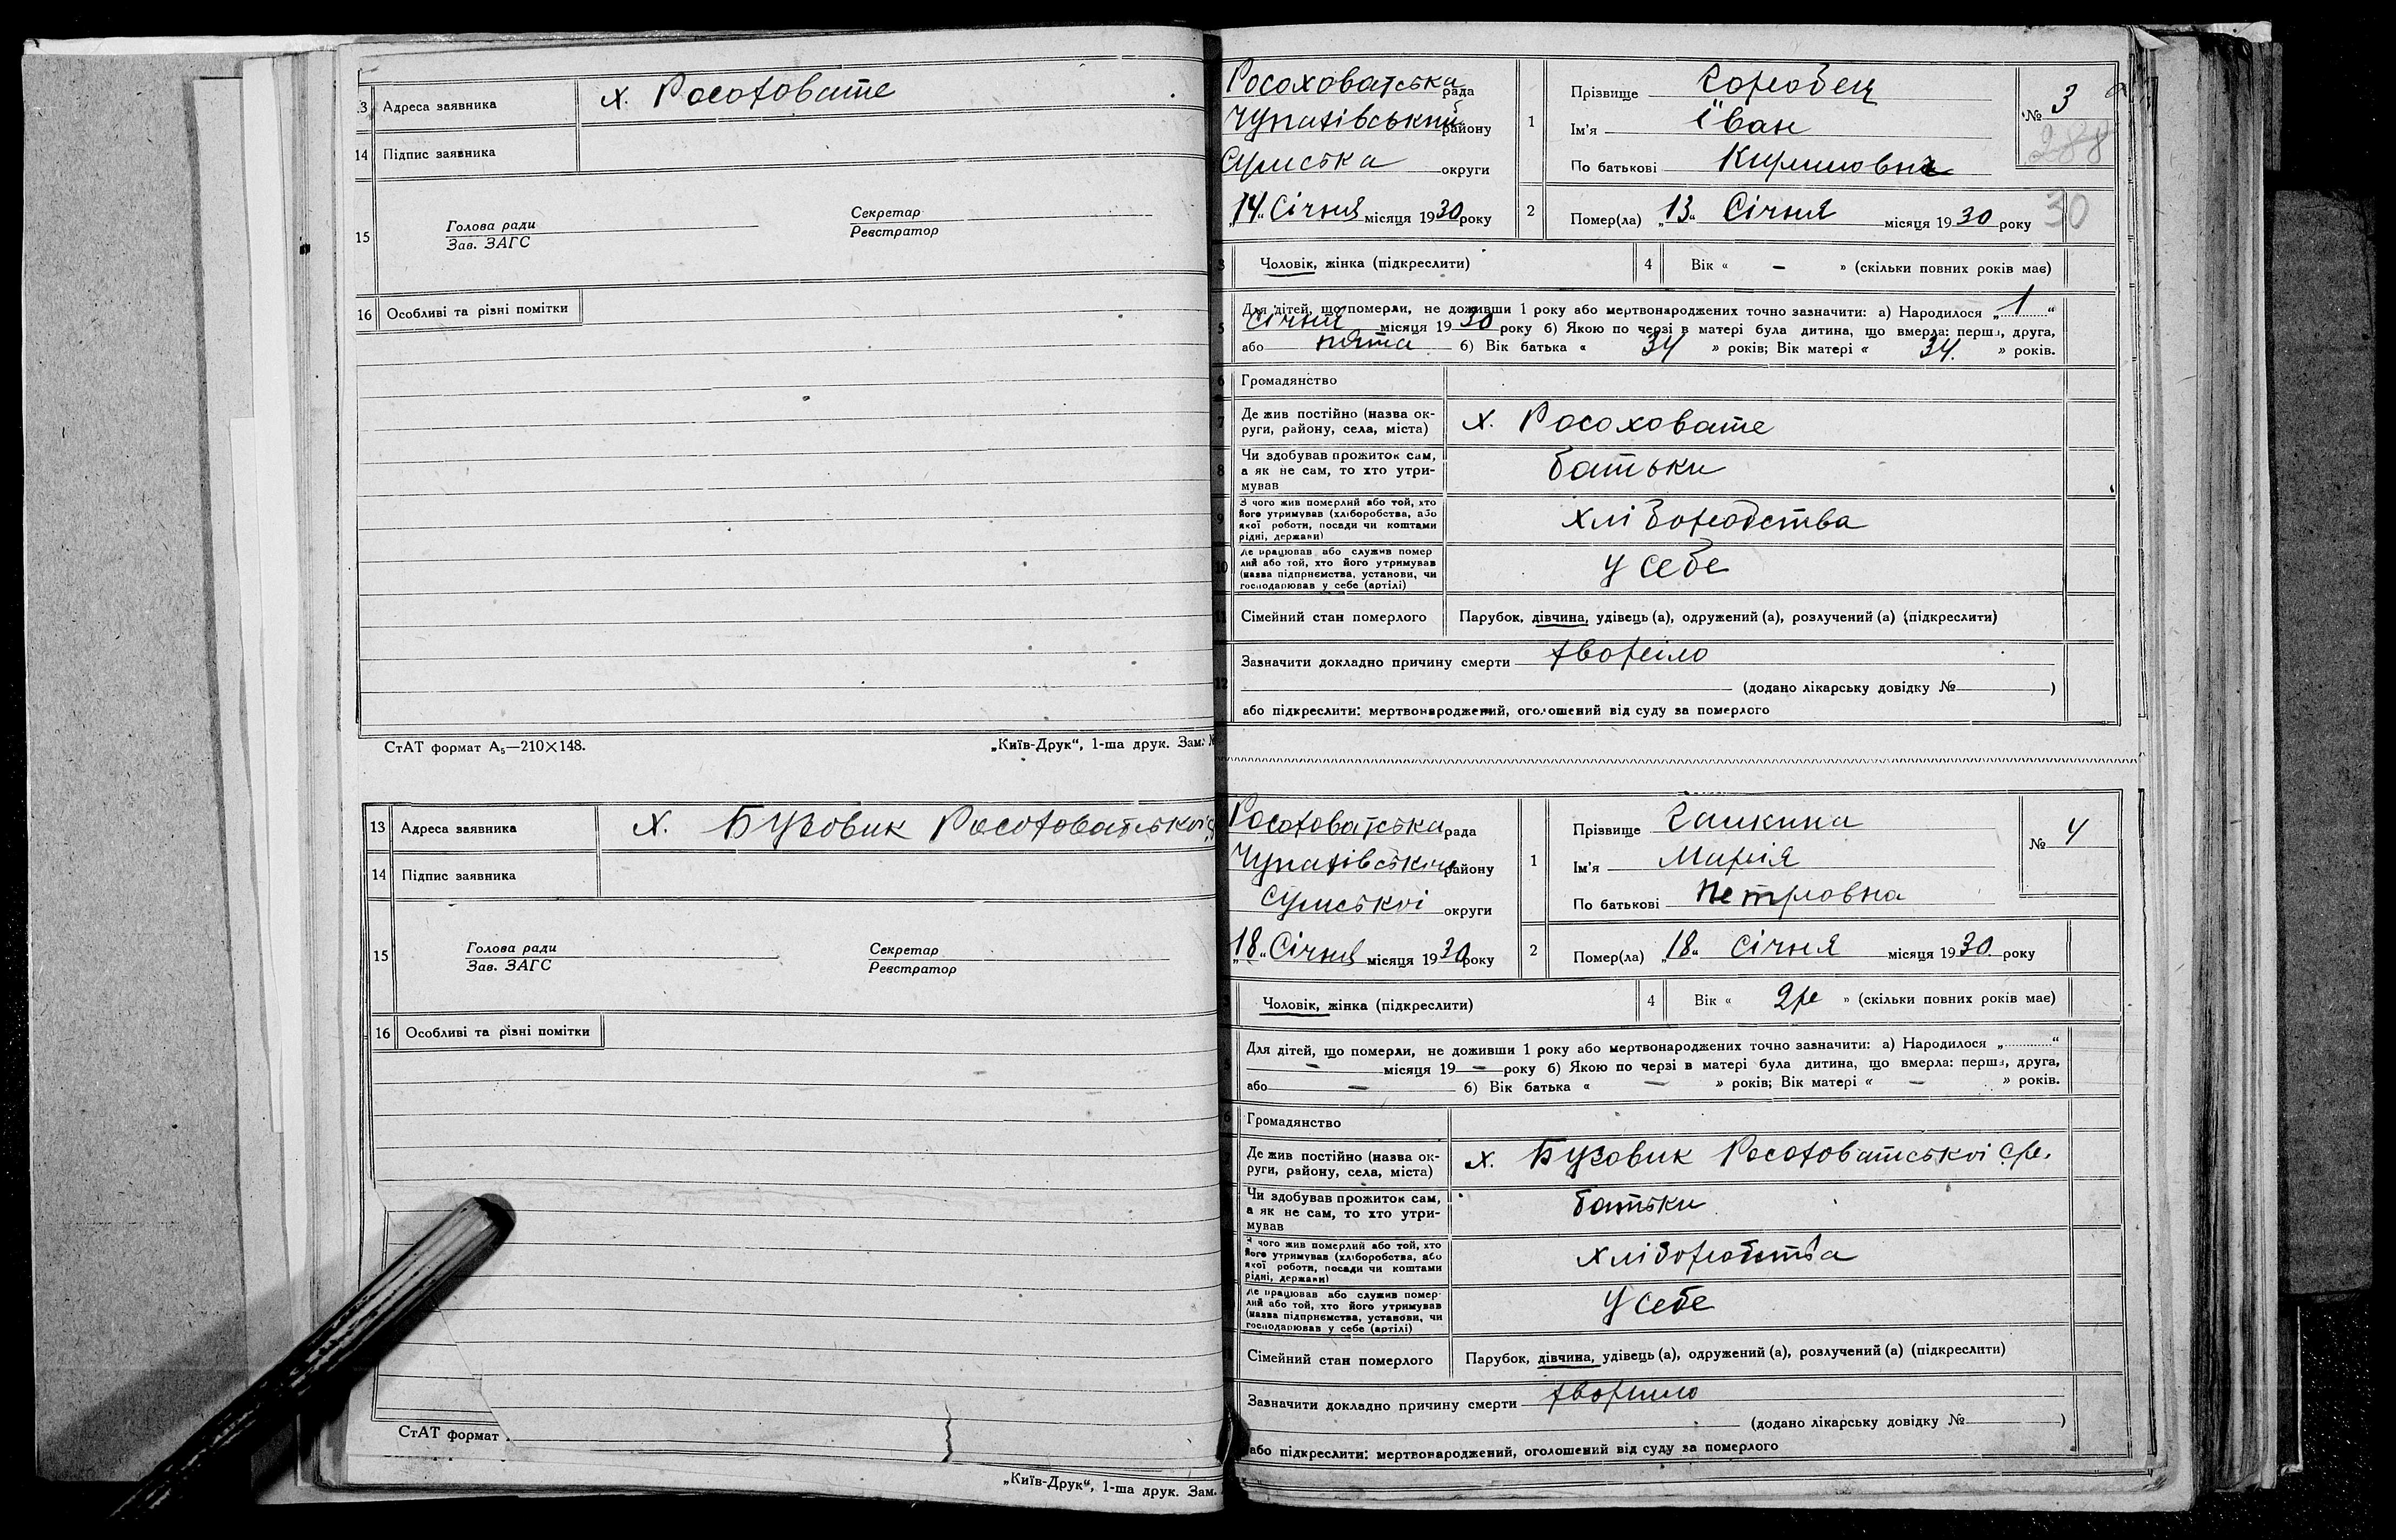 13 Адреса заявника х. Росоховате
14 Підпис заявника
15 Голова ради Секретар
Зав. ЗАГС Реєстратор
16 Особливі та різні помітки
СтАТ формат А₅—210×148. „Київ-Друк“, 1-ша друк. Зам. №
13 Адреса заявника х. Бузовик Росоховатської с
14 Підпис заявника
15 Голова ради Секретар
Зав. ЗАГС Реєстратор
16 Особливі та різні помітки
СтАТ формат
„Київ-Друк“, 1-ша друк. Зам.
Росоховатська рада
Чупахівський району
Сумська округи
„14“ Січня місяця 1930 року
1 Прізвище Горобец
Ім'я Іван
По батькові
№ 3
288
2 Помер(ла) „13“ Січня місяця 1930 року
30
3 Чоловік, жінка (підкреслити) 4 Вік « – » (скільки повних років має)
5 Для дітей, що померли, не доживши 1 року або мертвонароджених точно зазначити: а) Народилося „1“
Січня місяця 1930 року б) Якою по черзі в матері була дитина, що вмерла: перша, друга,
або пята б) Вік батька « 34 » років; Вік матері « 34. » років.
6 Громадянство
7 Де жив постійно (назва округи, району, села, міста) х. Росоховате
8 Чи здобував прожиток сам, а як не сам, то хто утримував батьки
9 З чого жив померлий або той, хто його утримував (хліборобства, або якої роботи, посади чи коштами рідні, держави) хліборобства
10 Де працював або служив помер лий або той, хто його утримував (назва підприємства, установи, чи господарював у себе (артілі) у себе
11 Сімейний стан померлого Парубок, дівчина, удівець (а), одружений (а), розлучений (а) (підкреслити)
12 Зазначити докладно причину смерти хворіло
(додано лікарську довідку № )
або підкреслити: мертвонароджений, оголошений від суду за померлого
Росоховатська рада
Чупахівської району
Сумської округи
„18“ Січня місяця 1930 року
1 Прізвище
Ім'я Марія
По батькові Петровна
№ 4
2 Помер(ла) „18“ Січня місяця 1930. року
Чоловік, жінка (підкреслити) 4 Вік « 2р » (скільки повних років має)
Для дітей, що померли, не доживши 1 року або мертвонароджених точно зазначити: а) Народилося „ “
– місяця 19 – року б) Якою по черзі в матері була дитина, що вмерла: перша, друга,
або – б) Вік батька « – » років; Вік матері « – » років.
6 Громадянство
Де жив постійно (назва округи, району, села, міста) х. Бузовик Росоховатської с/р.
Чи здобував прожиток сам, а як не сам, то хто утримував батьки
З чого жив померлий або той, хто його утримував (хліборобства, або якої роботи, посади чи коштами рідні, держави) хліборобства
Де працював або служив помер лий або той, хто його утримував (назва підприємства, установи, чи господарював у себе (артілі) у себе
Сімейний стан померлого Парубок, дівчина, удівець (а), одружений (а), розлучений (а) (підкреслити)
Зазначити докладно причину смерти хворіло
(додано лікарську довідку № )
або підкреслити: мертвонароджений, оголошений від суду за померлого